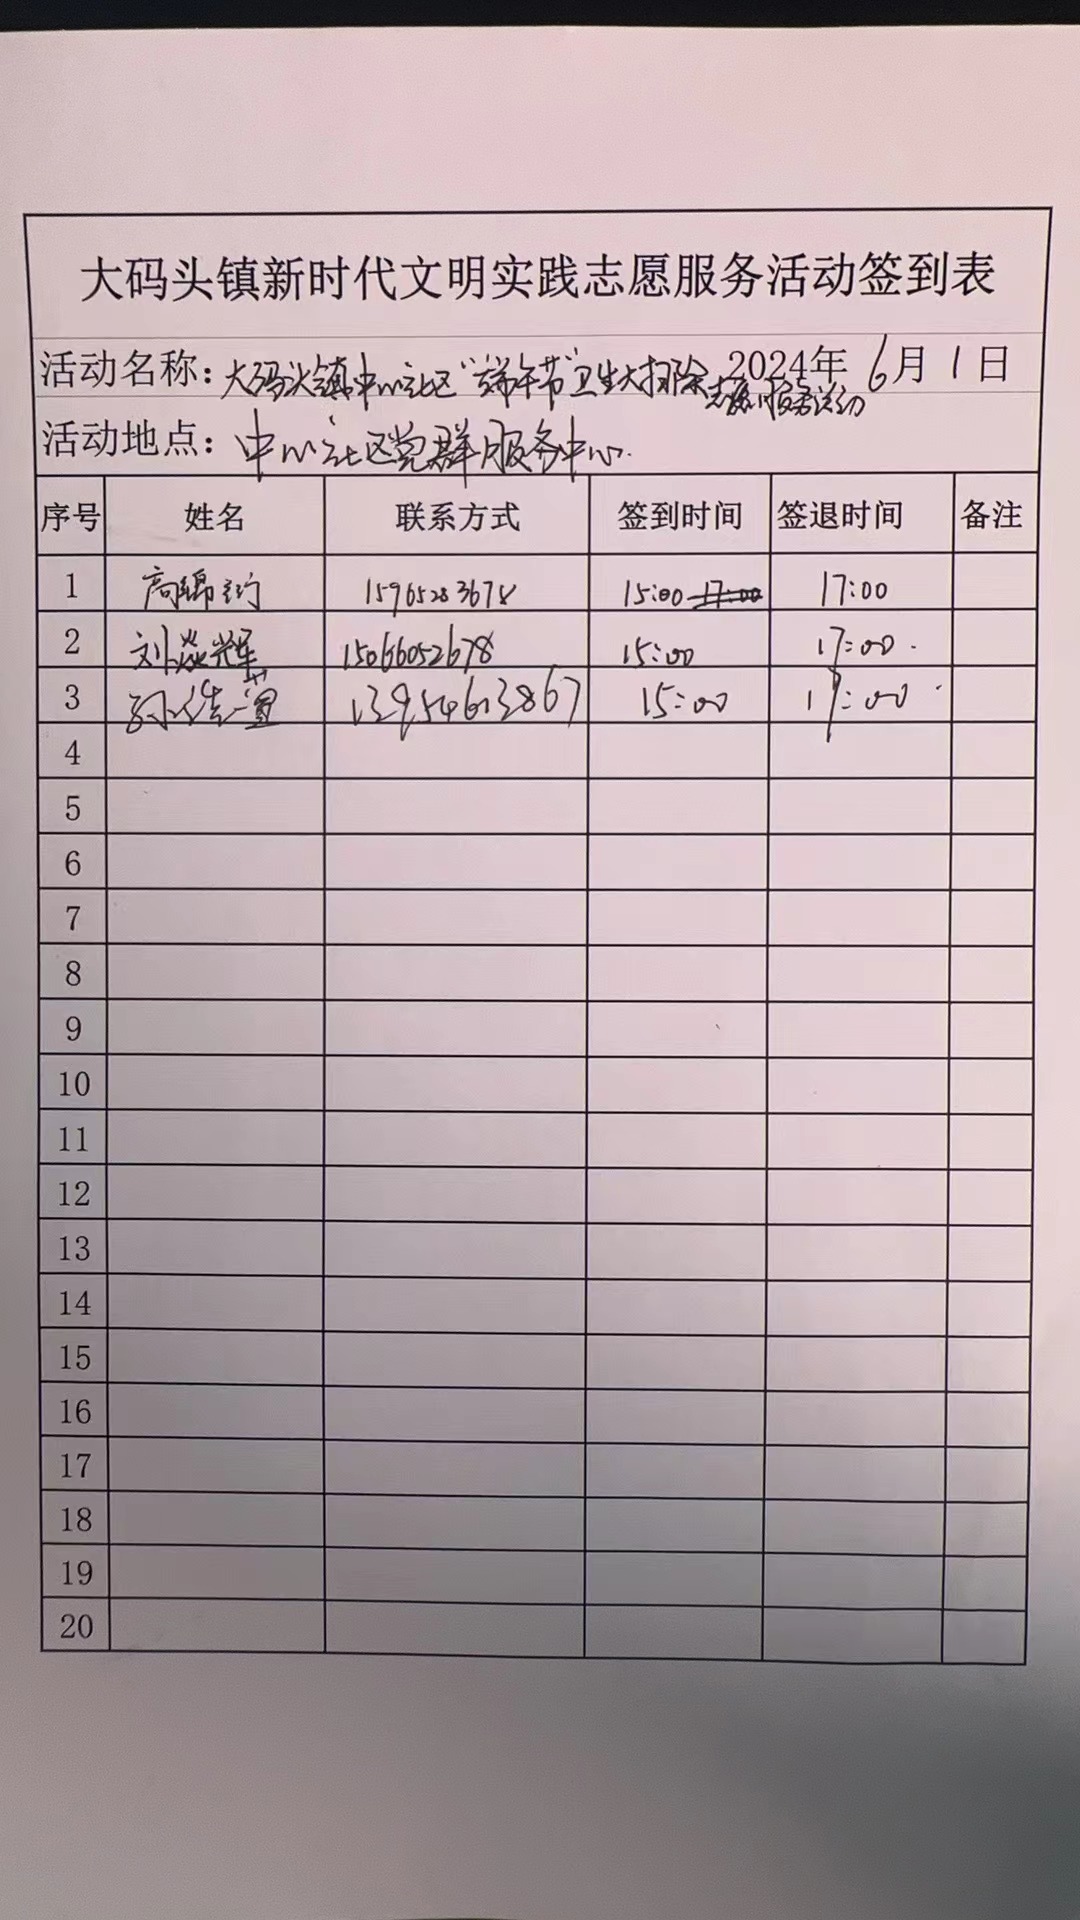 大码头镇新时代文明实践志愿服务活动签到表
活动名称：大码头镇中心社区“端午节”卫生大扫除志愿服务活动 2024年 6月 1日
活动地点：中心社区党群服务中心.
序号 姓名 联系方式 签到时间 签退时间 备注
1 高锦 15965283678 15:00 17:00 17:00
2 刘焱辉 15066052678 15:00 17:00
3 孙 13954613867 15:00 17:00
4
5
6
7
8
9
10
11
12
13
14
15
16
17
18
19
20